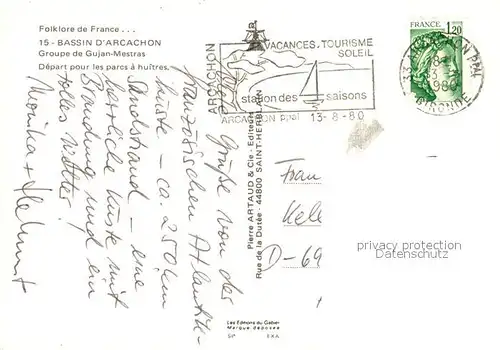 Folklore de France . . .
15 - BASSIN D'ARCACHON
Groupe de Gujan-Mestras
Départ pour les parcs à huîtres.
Grüße von der
französischen Atlantik-
küste - ca. 250 km
Sandstrand - eine
herrliche Küste mit
Brandung und ein
tolles Wetter!
Monika + Helmut
Pierre ARTAUD & Cie - Editeurs
Rue de la Dutée - 44800 SAINT-HERBLAIN
Les Editions du Gabier
Marque déposée
ARCACHON
VACANCES-TOURISME
SOLEIL
station des 4 saisons
ARCACHON Ppal 13-8-80
FRANCE 1,20
ARCACHON PPAL
1980
GIRONDE
Frau
D-69
privacy protection
Datenschutz